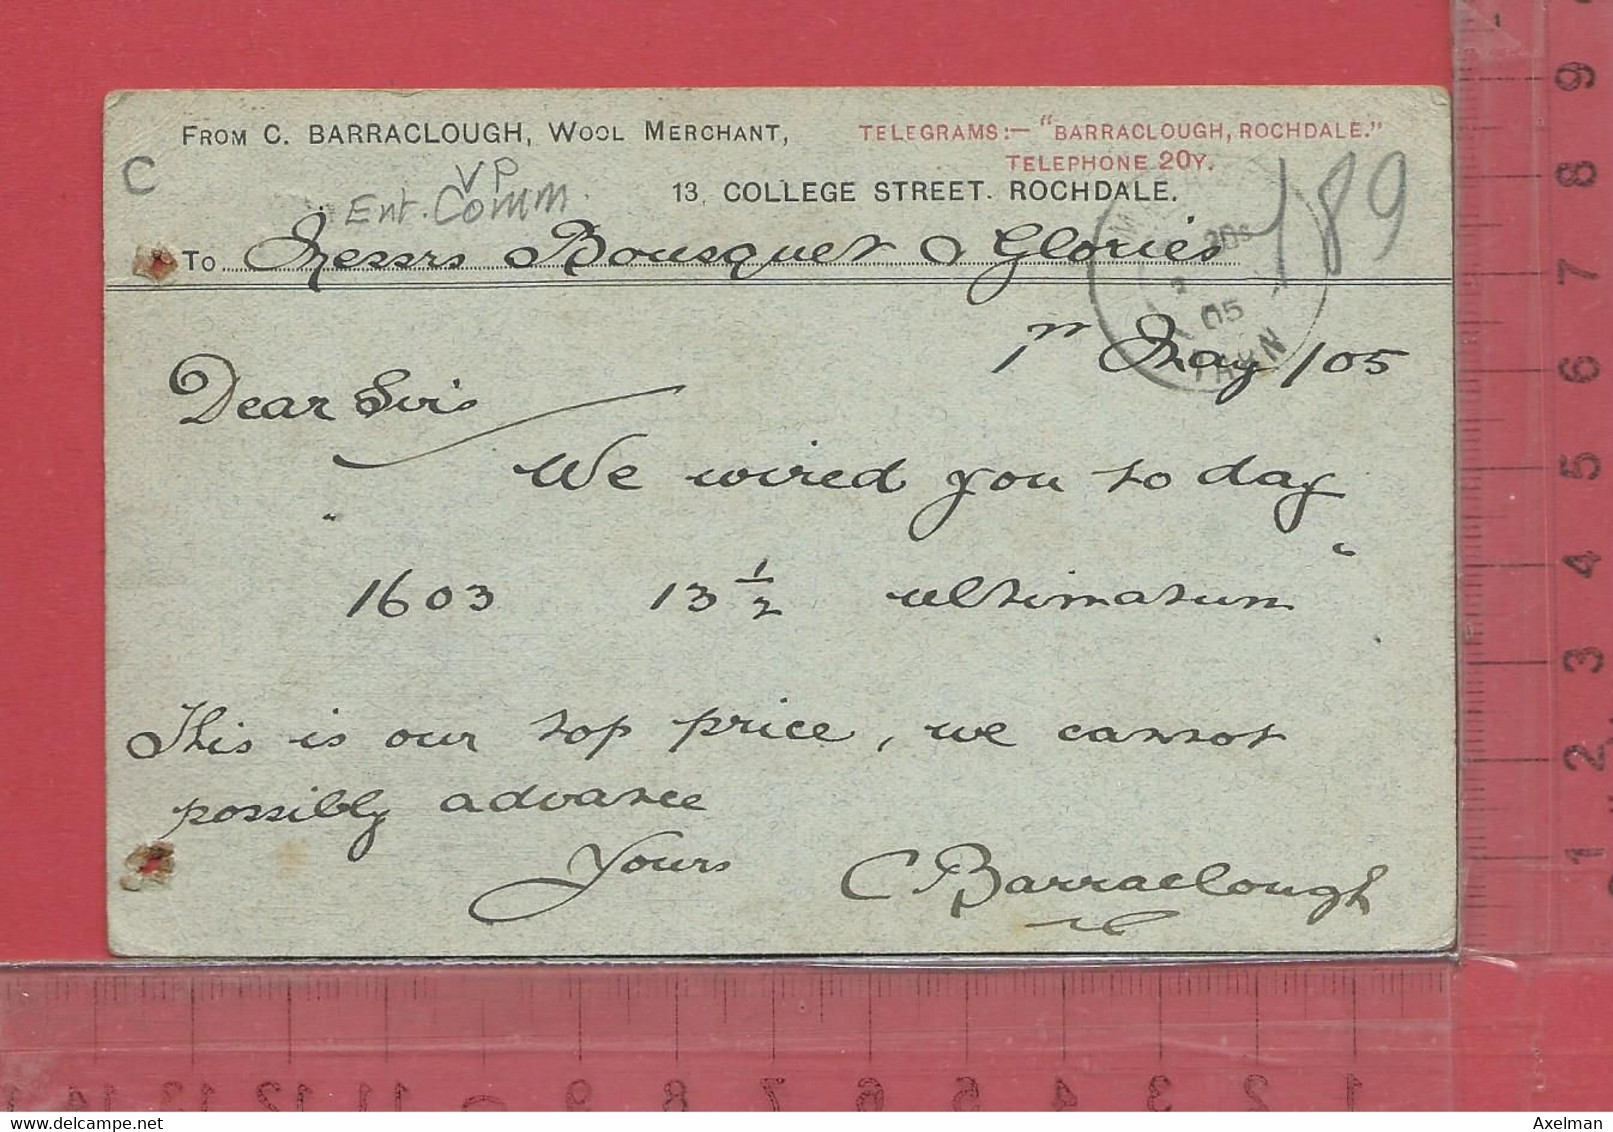 FROM C. BARRACLOUGH, WOOL MERCHANT,
TELEGRAMS:— "BARRACLOUGH, ROCHDALE."
TELEPHONE 20Y.
13, COLLEGE STREET. ROCHDALE.
C
VP
Ent. Comm.
189
To Messrs Bousquet & Glories
MAZAMET
05
TARN
1st May /05
Dear Sirs
We wired you to day
" 1603 13 1/2 ultimatum "
This is our top price, we cannot
possibly advance
Yours C Barraclough
9
8
7
6
5
4
3
2
1
14 13 12 11 9 8 7 6 5 4 3 2 1
www.delcampe.net
Axelman